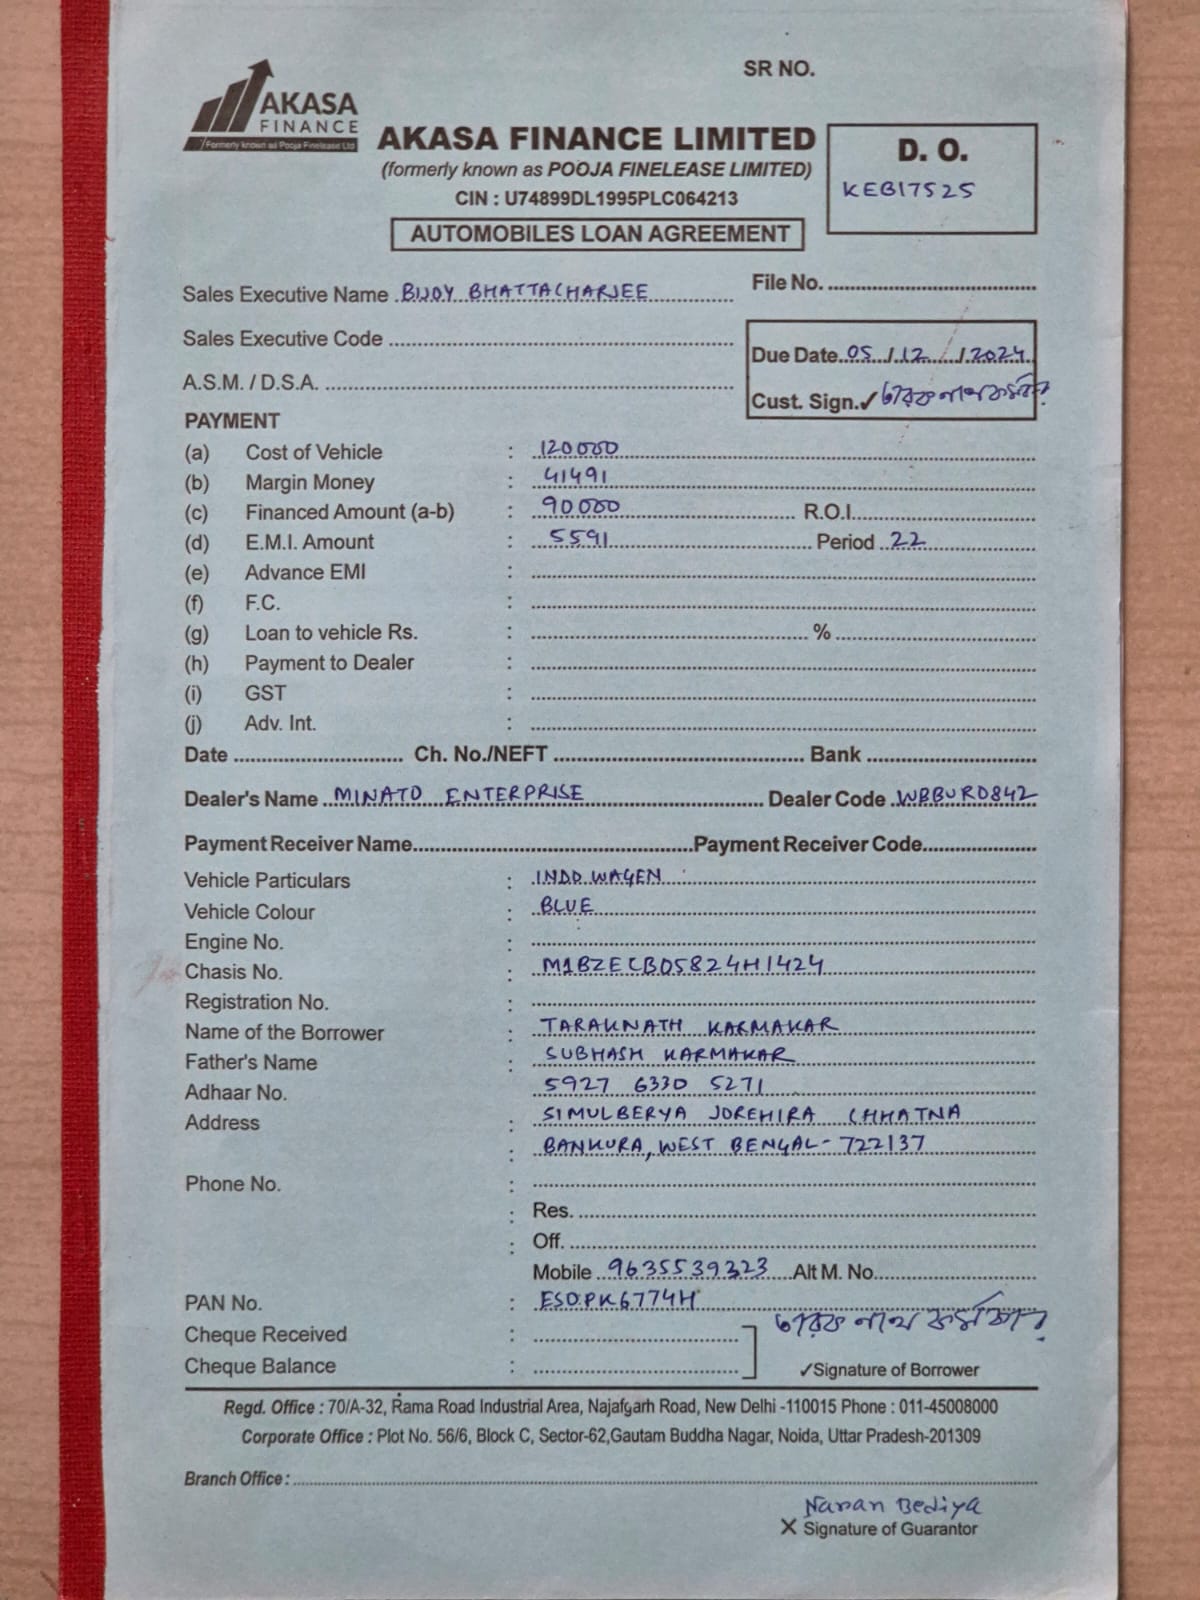 SR NO.
AKASA
FINANCE
Formerly known as Pooja Finelease Ltd
AKASA FINANCE LIMITED
(formerly known as POOJA FINELEASE LIMITED)
CIN : U74899DL1995PLC064213
AUTOMOBILES LOAN AGREEMENT
D. O.
KEB17525
Sales Executive Name BIJOY BHATTACHARJEE
File No.
Sales Executive Code
Due Date 05/12/2024
A.S.M. / D.S.A.
Cust. Sign.✓ তারক নাথ কর্মকার
PAYMENT
(a) Cost of Vehicle : 120000
(b) Margin Money : 41491
(c) Financed Amount (a-b) : 90000 R.O.I.
(d) E.M.I. Amount : 5591 Period 22
(e) Advance EMI :
(f) F.C. :
(g) Loan to vehicle Rs. : %
(h) Payment to Dealer :
(i) GST :
(j) Adv. Int. :
Date Ch. No./NEFT Bank
Dealer's Name MINATO ENTERPRISE Dealer Code WBBUR0842
Payment Receiver Name Payment Receiver Code
Vehicle Particulars : INDO WAGEN
Vehicle Colour : BLUE
Engine No. :
Chasis No. : M1BZECBD5824H1424
Registration No. :
Name of the Borrower : TARAKNATH KARMAKAR
Father's Name : SUBHASH KARMAKAR
Adhaar No. : 5927 6330 5271
Address : SIMULBERYA JOREHIRA CHHATNA
: BANKURA, WEST BENGAL - 722137
Phone No. :
: Res.
: Off.
Mobile 9635539323 Alt M. No.
PAN No. : ESOPK6774H
Cheque Received :
তারক নাথ কর্মকার
Cheque Balance :
✓Signature of Borrower
Regd. Office : 70/A-32, Rama Road Industrial Area, Najafgarh Road, New Delhi -110015 Phone : 011-45008000
Corporate Office : Plot No. 56/6, Block C, Sector-62,Gautam Buddha Nagar, Noida, Uttar Pradesh-201309
Branch Office :
Naran Bediya
X Signature of Guarantor